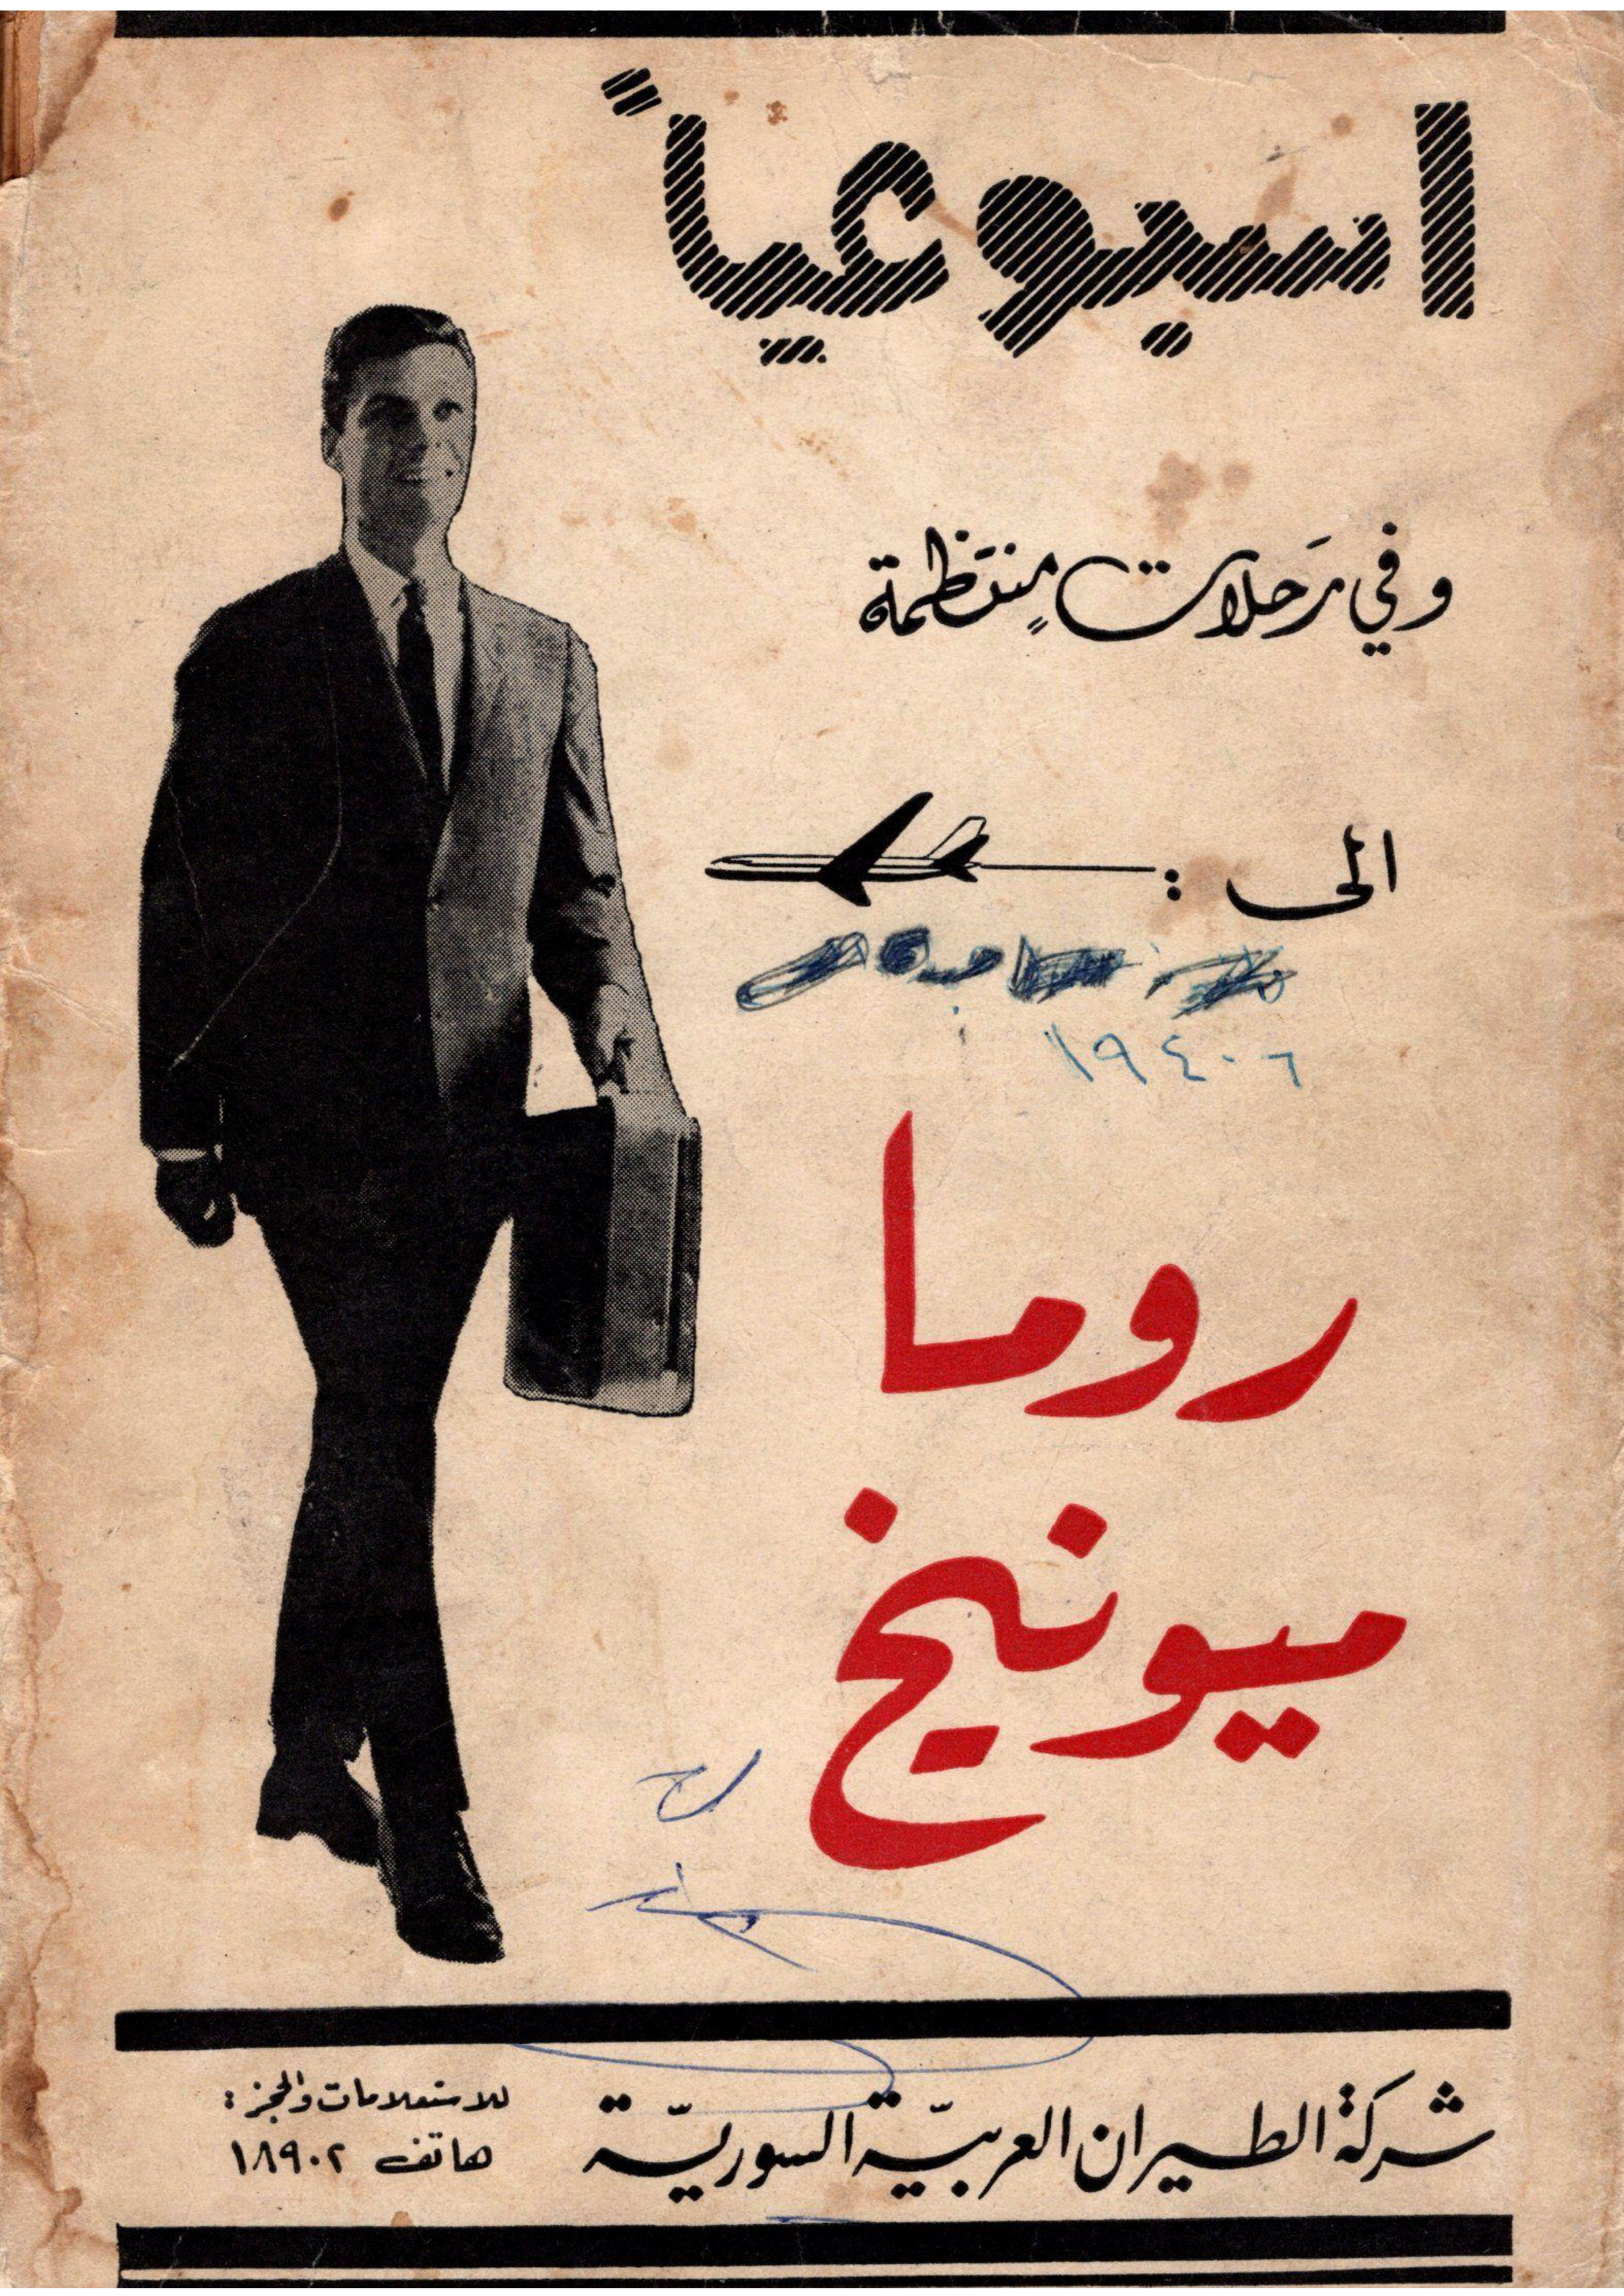 اسبوعياً
وفي رَحلات مِنتَظمة
الى :
١٩٤٠٦
روما
ميونيخ
شركة الطيران العربيّة السوريّة
للاستعلامات والحجز :
هاتف ١٨٩٠٢